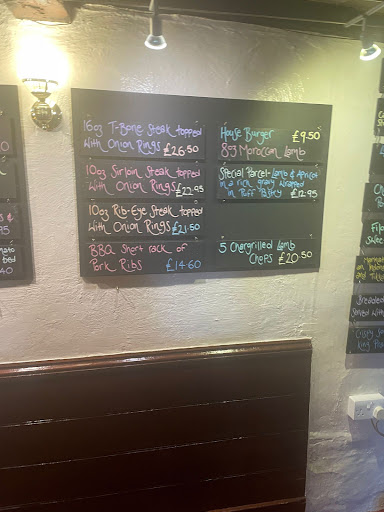 16oz T-Bone Steak topped
with Onion Rings £26.50
10oz Sirloin Steak topped
with Onion Rings £22.95
10oz Rib-Eye Steak topped
with Onion Rings £21.50
BBQ Short rack of
Pork Ribs £14.60
House Burger £9.50
8oz Moroccan Lamb
Special Parcel-Lamb & Apricot
in a rich gravy wrapped
in Puff Pastry £12.95
5 Chargrilled Lamb
Chops £20.50